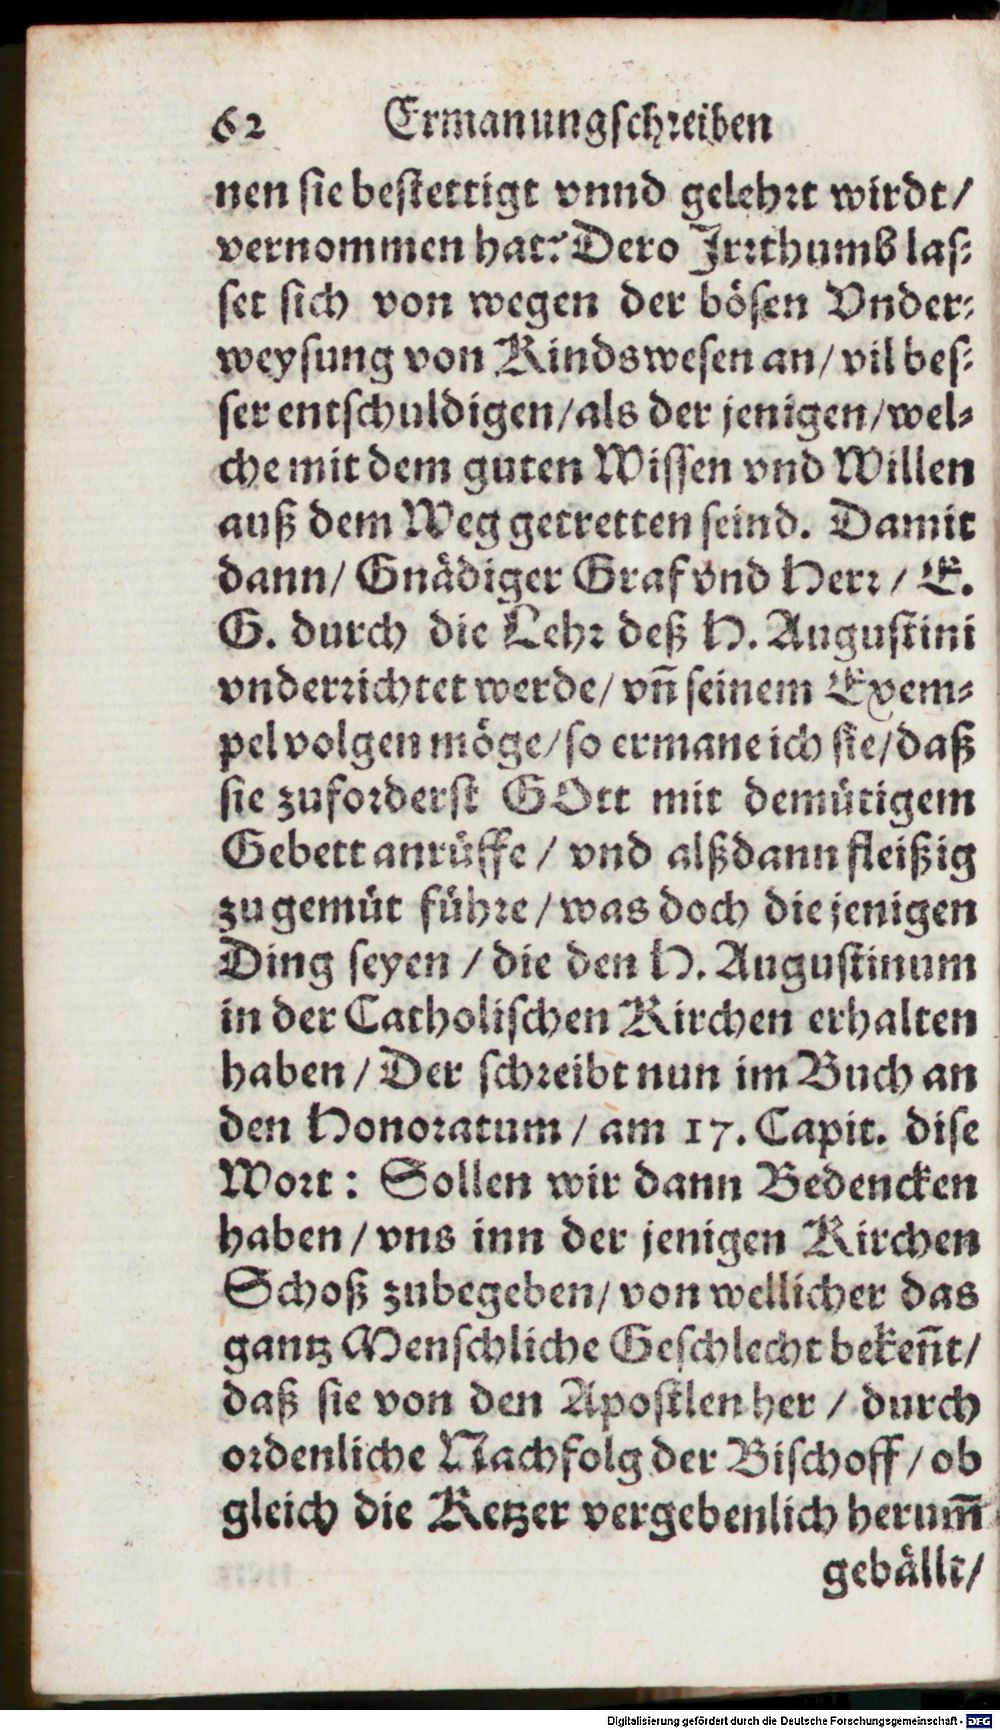 62 Ermanungschreiben
nen sie bestettigt vnnd gelehrt wirdt/
vernommen hat? Dero Irrthumb las-
set sich von wegen der bösen Vnder-
weysung von Kindswesen an/ vil bes-
ser entschuldigen/ als der jenigen/ wel-
che mit dem guten Wissen vnd Willen
auß dem Weg getretten seind. Damit
dann/ Gnädiger Graf vnd Herr/ E.
G. durch die Lehr deß H. Augustini
vnderrichtet werde/ vn̄ seinem Exem-
pel volgen möge/ so ermane ich sie/ daß
sie zuforderst GOtt mit demütigem
Gebett anrüffe/ vnd alßdann fleißig
zu gemüt führe/ was doch die jenigen
Ding seyen/ die den H. Augustinum
in der Catholischen Kirchen erhalten
haben/ Der schreibt nun im Buch an
den Honoratum/ am 17. Capit. dise
Wort: Sollen wir dann Bedencken
haben/ vns inn der jenigen Kirchen
Schoß zubegeben/ von wellicher das
gantz Menschliche Geschlecht beken̄t/
daß sie von den Apostlen her/ durch
ordenliche Nachfolg der Bischoff/ ob
gleich die Ketzer vergebenlich herum̄
gebällt/
Digitalisierung gefördert durch die Deutsche Forschungsgemeinschaft - DFG